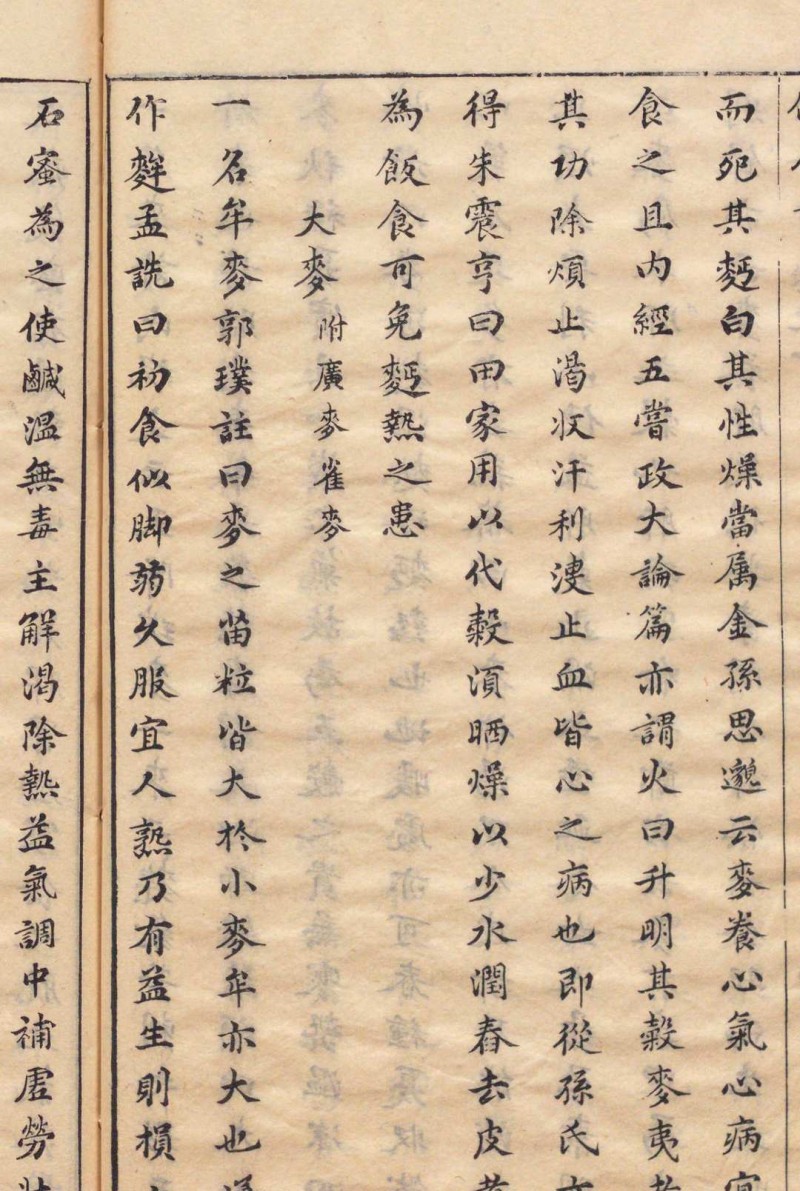 而死其麪白其性燥當属金孫思邈云麥養心氣心病宜
食之且内經五嘗政大論篇亦謂火曰升明其穀麥夷
其功除煩止渴収汗利溲止血皆心之病也即從孫氏亦
得朱震亨曰田家用以代穀湏晒燥以少水潤舂去皮
為飯食可免麪熱之患
大麥 附廣麥雀麥
一名牟麥郭璞註曰麥之苗粒皆大於小麥牟亦大也
作麰孟詵曰初食似脚弱久服宜人熟乃有益生則損
石蜜為之使鹹温無毒主解渴除熱益氣調中補虛勞